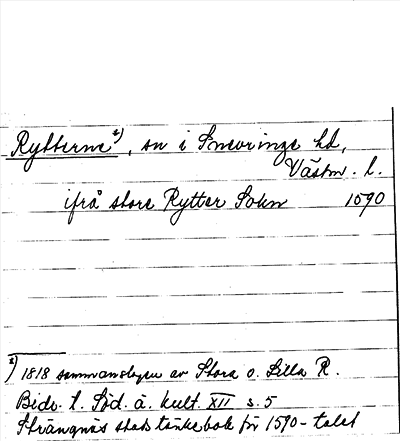 Rytterne x), sn i Snevringe hd,
Västm. l.
ifrå store Rytter Sokn 1590
x) 1818 sammanslagen av Stora o. Lilla R.
Bidr. t. Söd. ä. kult. XII s. 5
Strängnäs stads tänkebok för 1590-talet